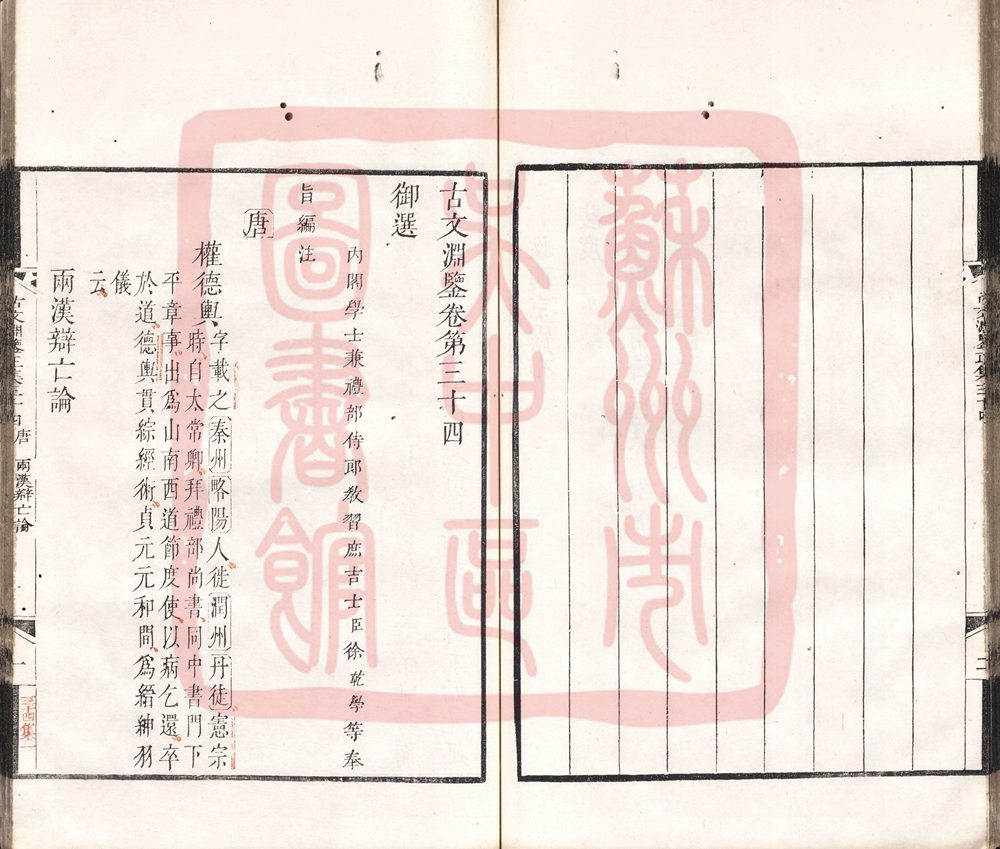 蘇州市
吳中區
圖書館
二
古文淵鑒卷第三十四
御選
內閣學士兼禮部侍郎教習庶吉士臣徐乾學等奉
旨編注
唐
權德輿字載之秦州略陽人徙潤州丹徒憲宗
時自太常卿拜禮部尚書同中書門下
平章事出為山南西道節度使以病乞還卒
於道德輿貫綜經術貞元元和間為縉紳羽
儀
云
兩漢辯亡論
唐 兩漢辯亡論 一